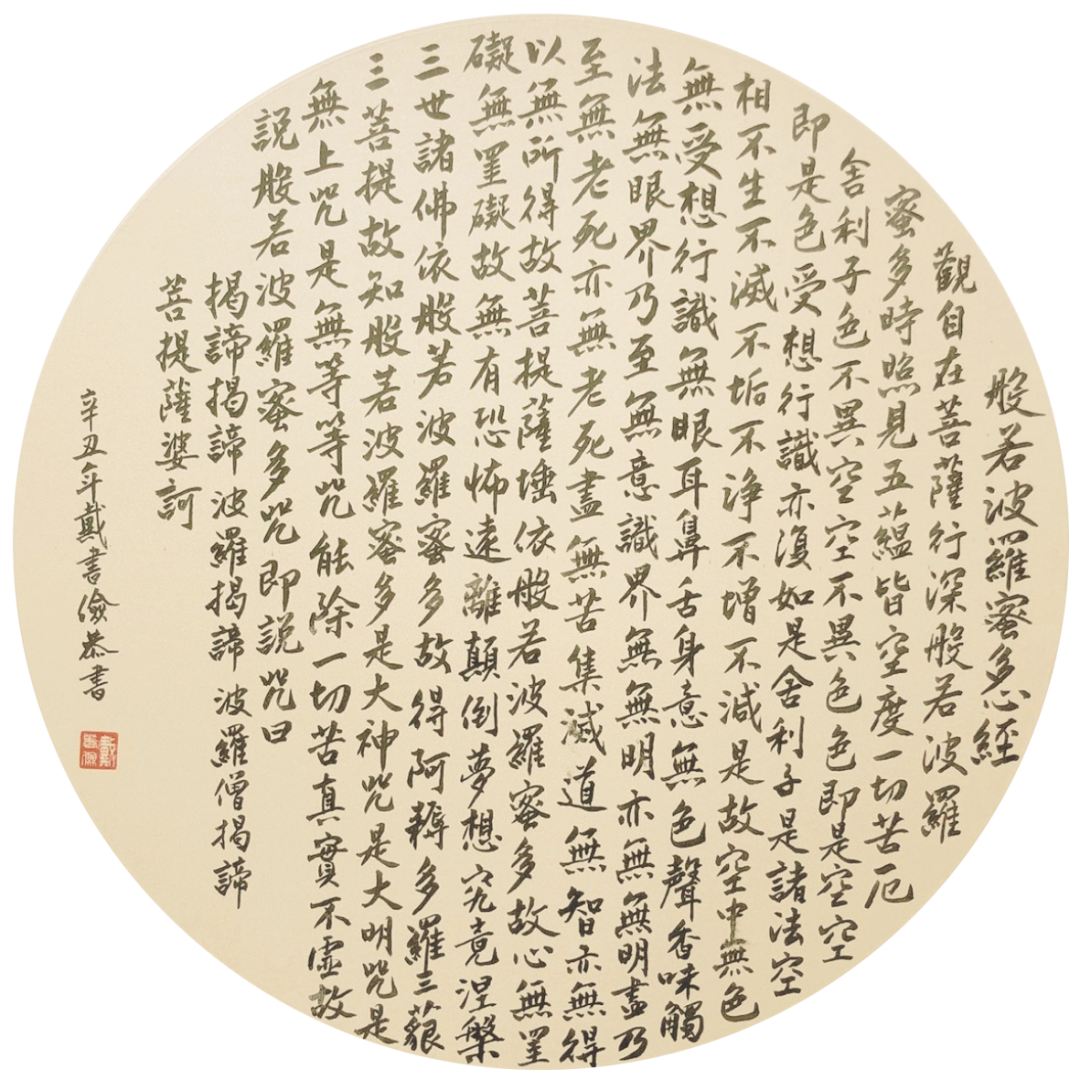 般若波羅蜜多心經
觀自在菩薩行深般若波羅
蜜多時照見五蘊皆空度一切苦厄
舍利子色不異空空不異色色即是空空
即是色受想行識亦復如是舍利子是諸法空
相不生不滅不垢不淨不增不減是故空中無色
無受想行識無眼耳鼻舌身意無色聲香味觸
法無眼界乃至無意識界無無明亦無無明盡乃
至無老死亦無老死盡無苦集滅道無智亦無得
以無所得故菩提薩埵依般若波羅蜜多故心無罣
礙無罣礙故無有恐怖遠離顛倒夢想究竟涅槃
三世諸佛依般若波羅蜜多故得阿耨多羅三藐
三菩提故知般若波羅蜜多是大神咒是大明咒是
無上咒是無等等咒能除一切苦真實不虛故
說般若波羅蜜多咒即說咒曰
揭諦揭諦 波羅揭諦 波羅僧揭諦
菩提薩婆訶
辛丑年戴書儉恭書